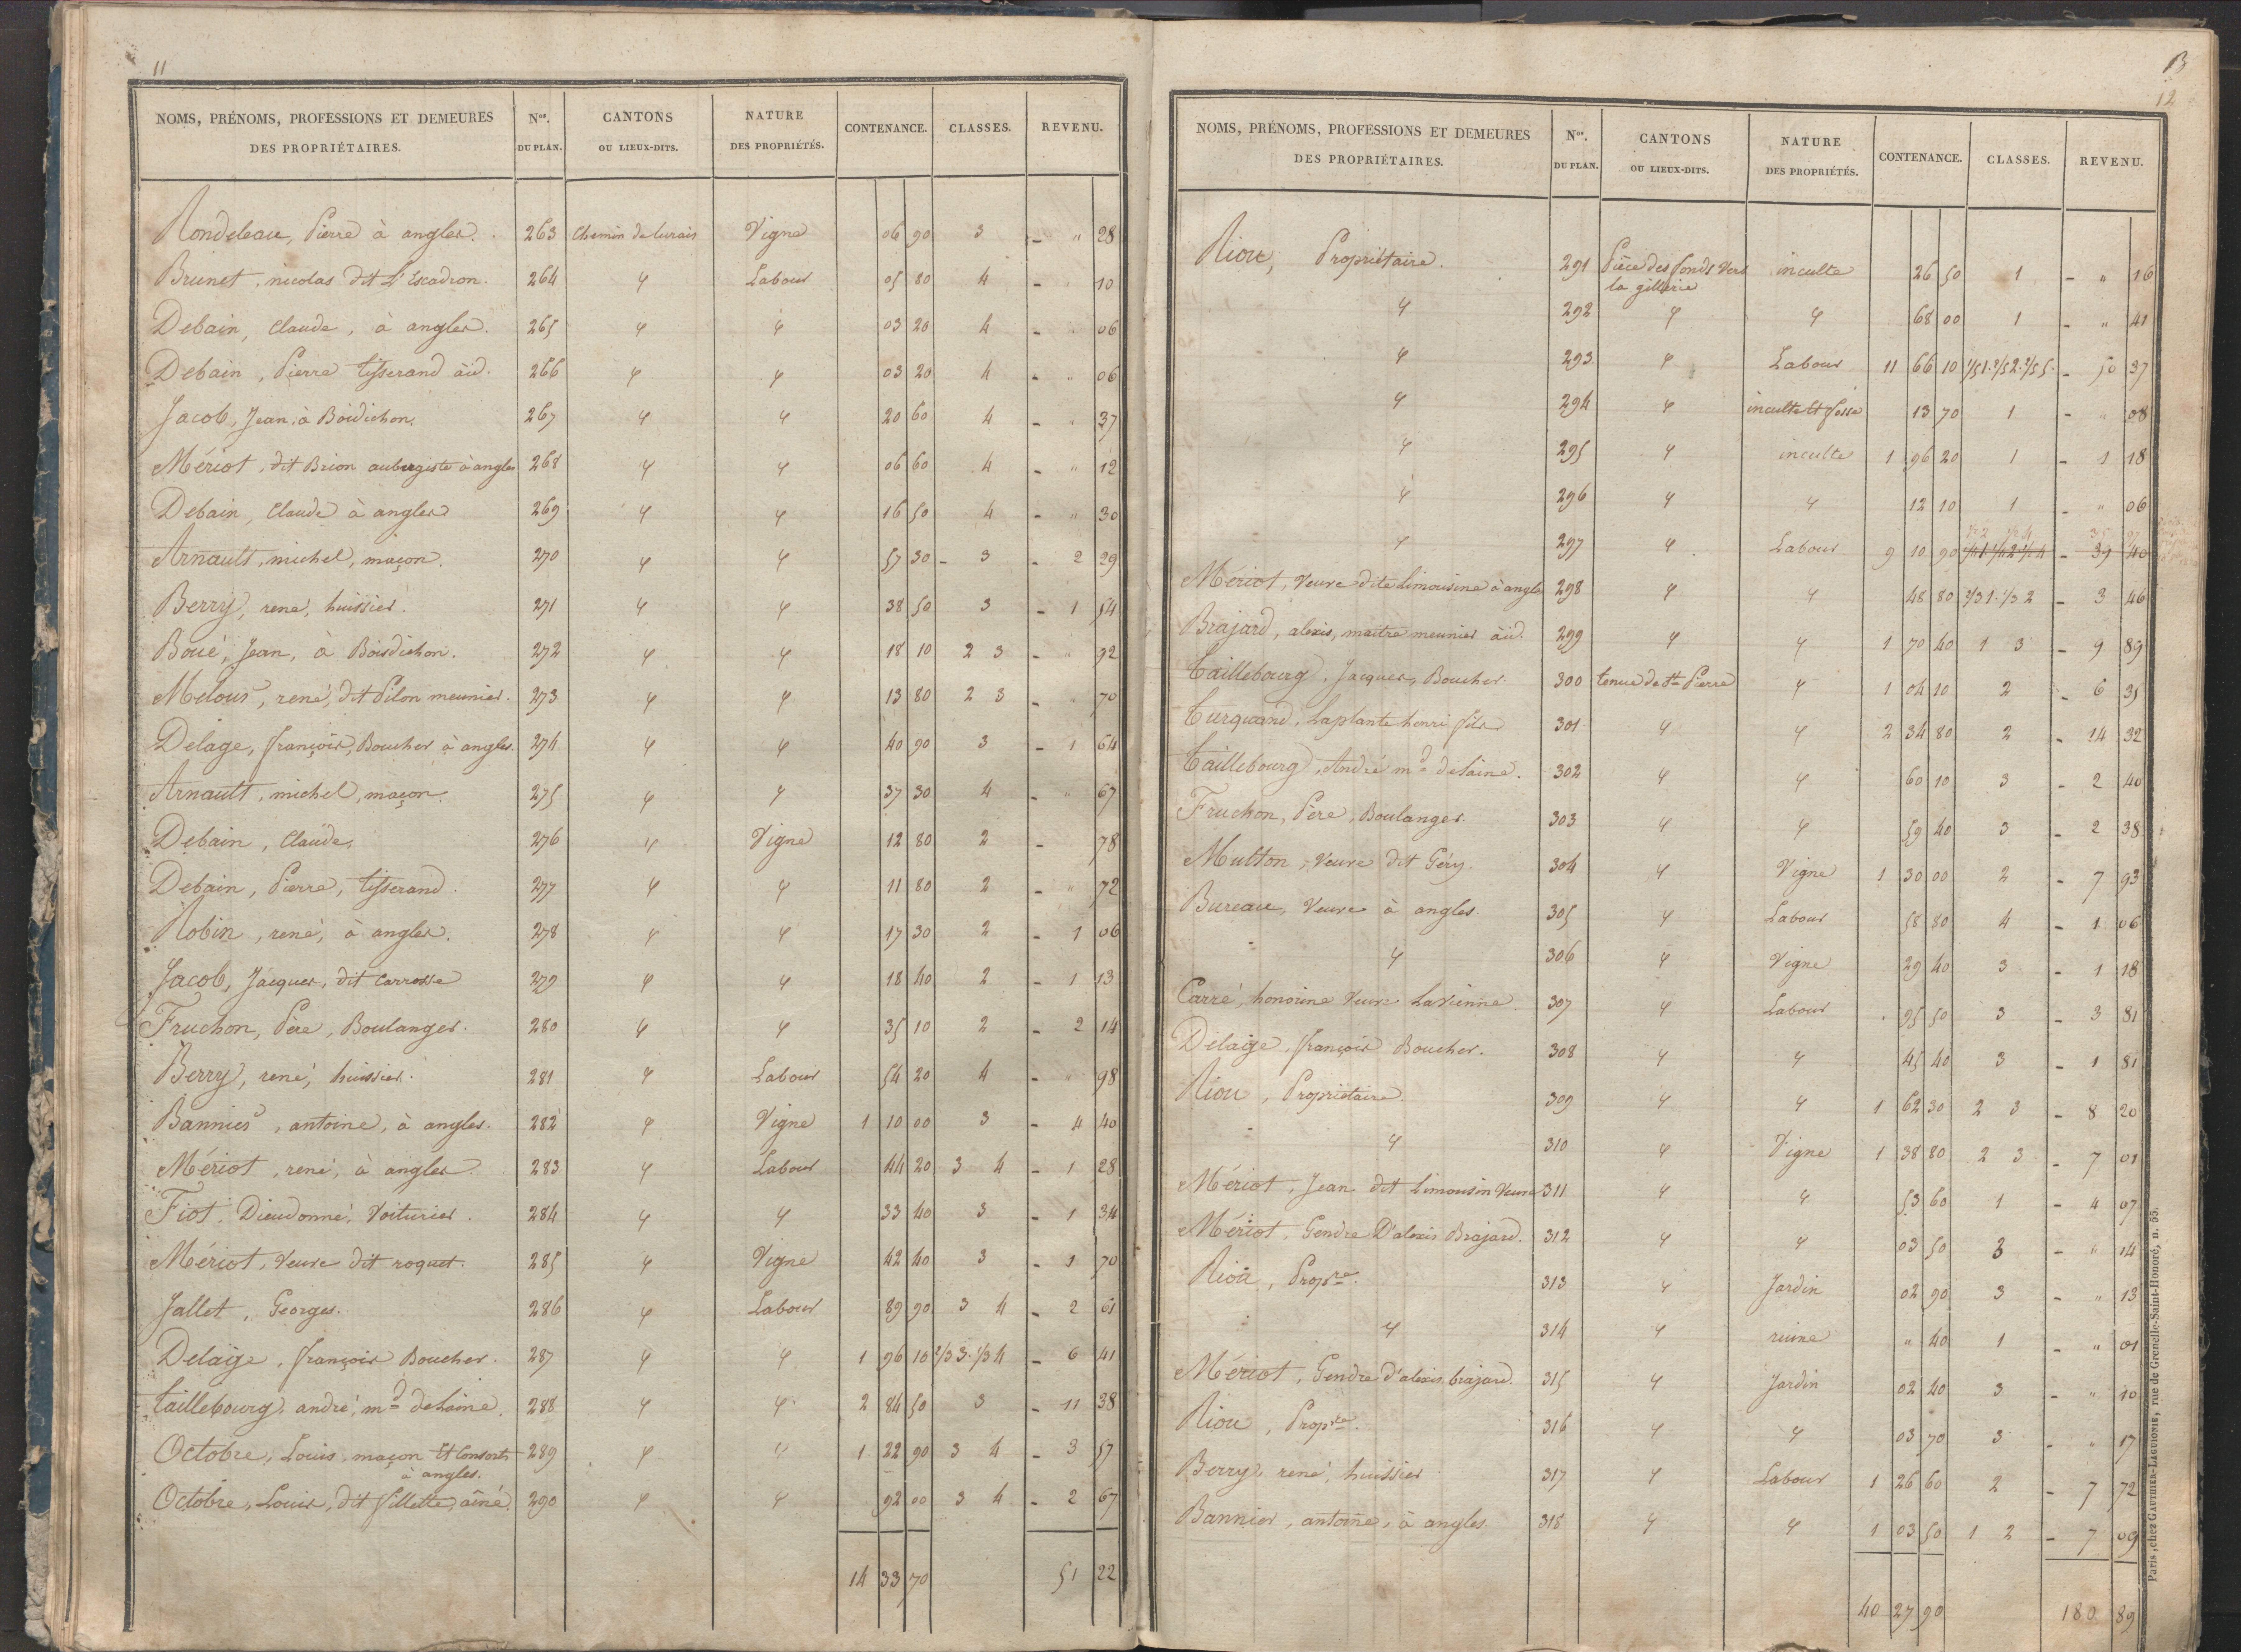 11
NOMS, PRÉNOMS, PROFESSIONS ET DEMEURES DES PROPRIÉTAIRES. Nos. DU PLAN. CANTONS OU LIEUX-DITS. NATURE DES PROPRIÉTÉS. CONTENANCE. CLASSES. REVENU.
Rondeleau, Pierre à angles. 263 Chemin de lurais Vigne 06 90 3 - " 28
Brunet, nicolas dit L'Escadron. 264 " Labour 05 80 4 - 10
Debain, Claude, à angles. 265 " " 03 20 4 - " 06
Debain, Pierre tisserand aïd. 266 " " 03 20 4 - " 06
Jacob, Jean, à Boidichon. 267 " " 20 60 4 - " 37
Mériot, dit Brion aubergiste à angles 268 " " 06 60 4 - " 12
Debain, Claude à angles 269 " " 16 50 4 - " 30
Arnault, michel, maçon. 270 " " 57 30 - 3 - 2 29
Berry, rené, huissier. 271 " " 38 50 3 - 1 54
Boué, Jean, à Boisdichon. 272 " " 18 10 2 3 - " 92
Melous, rené, dit Pilon meunier. 273 " " 13 80 2 3 - " 70
Delage, françois, Boucher à angles. 274 " " 40 90 3 - 1 64
Arnault, michel, maçon. 275 " " 37 30 4 - " 67
Debain, Claude, 276 " Vigne 12 80 2 - 78
Debain, Pierre, tisserand. 277 " " 11 80 2 - " 72
Robin, rené, à angles. 278 " " 17 30 2 - 1 06
Jacob, Jacques, dit Carrosse 279 " " 18 40 2 - 1 13
Fruchon, Père, Boulanger. 280 " " 35 10 2 - 2 14
Berry, rené, huissier. 281 " Labour 54 20 4 - " 98
Bannier, antoine, à angles. 282 " Vigne 1 10 00 3 - 4 40
Mériot, rené, à angles. 283 " Labour 44 20 3 4 - 1 28
Fiot, Dieudonné, Voiturier. 284 " " 33 40 3 - 1 34
Mériot, Veuve dit roquet. 285 " Vigne 42 40 3 - 1 70
Jallet, Georges. 286 " Labour 89 90 3 4 - 2 61
Delaige, françois Boucher. 287 " " 1 96 10 2/3 3. 1/3 4 - 6 41
taillebourg, andré, md de laine. 288 " " 2 84 50 3 - 11 38
Octobre, Louis, maçon Et Consorts à angles. 289 " " 1 22 90 3 4 - 3 57
Octobre, Louis, dit fillette, aîné. 290 " " 92 00 3 4 - 2 67
14 33 70 51 22
12
NOMS, PRÉNOMS, PROFESSIONS ET DEMEURES DES PROPRIÉTAIRES. Nos. DU PLAN. CANTONS OU LIEUX-DITS. NATURE DES PROPRIÉTÉS. CONTENANCE. CLASSES. REVENU.
Riou, Propriétaire. 291 Pièce des fonds Vers la gillerie inculte 26 50 1 - " 16
" 292 " " 68 00 1 - " 41
" 293 " Labour 11 66 10 1/5 1. 2/5 2. 2/5 5. - 50 37
" 294 " inculte Et fosse 13 70 1 - " 08
" 295 " inculte 1 96 20 1 - 1 18
" 296 " " 12 10 1 - " 06
" 297 " Labour 9 10 90 - 39 40
Mériot, Veuve dite Limousine à angles 298 " " 48 80 2/3 1. 1/3 2 - 3 46
Brajard, alexis, maitre meunier aïd. 299 " " 1 70 40 1 3 - 9 89
taillebourg, Jacques, Boucher. 300 tenue de St Pierre " 1 04 10 2 - 6 35
turquand, Laplante henri fils 301 " " 2 34 80 2 - 14 32
taillebourg, André md de laine. 302 " " 60 10 3 - 2 40
Fruchon, Père, Boulanger. 303 " " 59 40 3 - 2 38
Multon, Veuve dit Géry 304 " Vigne 1 30 00 2 - 7 93
Bureau, Veuve à angles 305 " Labour 58 80 4 - 1 06
" 306 " Vigne 29 40 3 - 1 18
Carré, honorine Veuve Lavienne 307 " Labour 95 50 3 - 3 81
Delaige, françois Boucher. 308 " " 45 40 3 - 1 81
Riou, Propriétaire. 309 " " 1 62 30 2 3 - 8 20
" 310 " Vigne 1 38 80 2 3 - 7 01
Mériot, Jean dit Limousin Veuve 311 " " 53 60 1 - 4 07
Mériot, Gendre D'alexis Brajard. 312 " " 03 50 3 - " 14
Riou, Propre. 313 " Jardin 02 90 3 - " 13
" 314 " ruine " 40 1 - " 01
Mériot, Gendre d'alexis brajard. 315 " Jardin 02 40 3 - " 10
Riou, Propre. 316 " " 03 70 3 - " 17
Berry, rené, huissier 317 " Labour 1 26 60 2 - 7 72
Bannier, antoine, à angles. 318 " " 1 03 50 1 2 - 7 09
40 27 90 180 89
Paris, chez GAUTHIER-LAGUIONIE, rue de Grenelle-Saint-Honoré, n. 55.